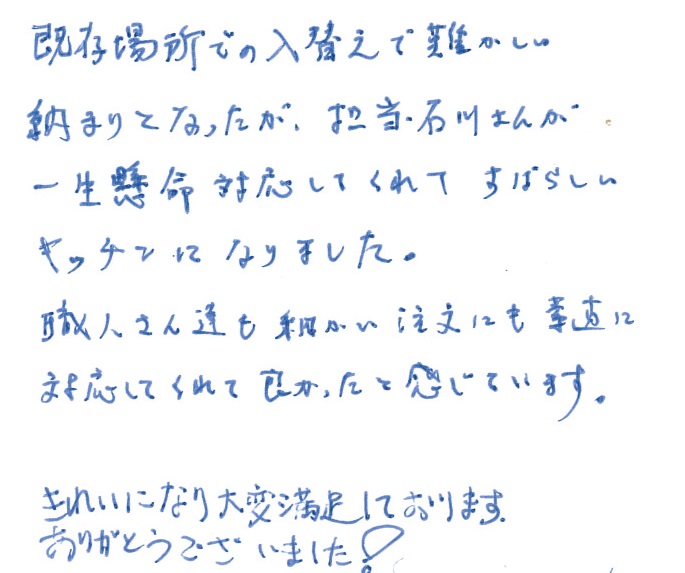 既存場所での入替えで難かしい
納まりとなったが、担当・石川さんが
一生懸命対応してくれてすばらしい
キッチンになりました。
職人さん達も細かい注文にも率直に
対応してくれて良かったと感じています。
きれいになり大変満足しております。
ありがとうございました!